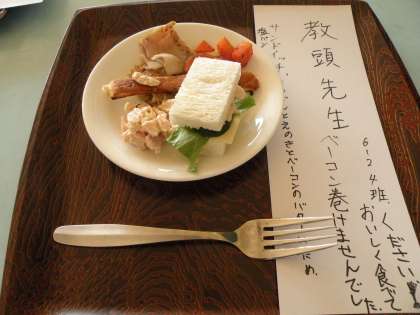 教頭先生
ベーコン巻けませんでした。
おいしく食べて
ください
6-2 4班
サンドイッチ、
えのきとベーコンのバター
め。